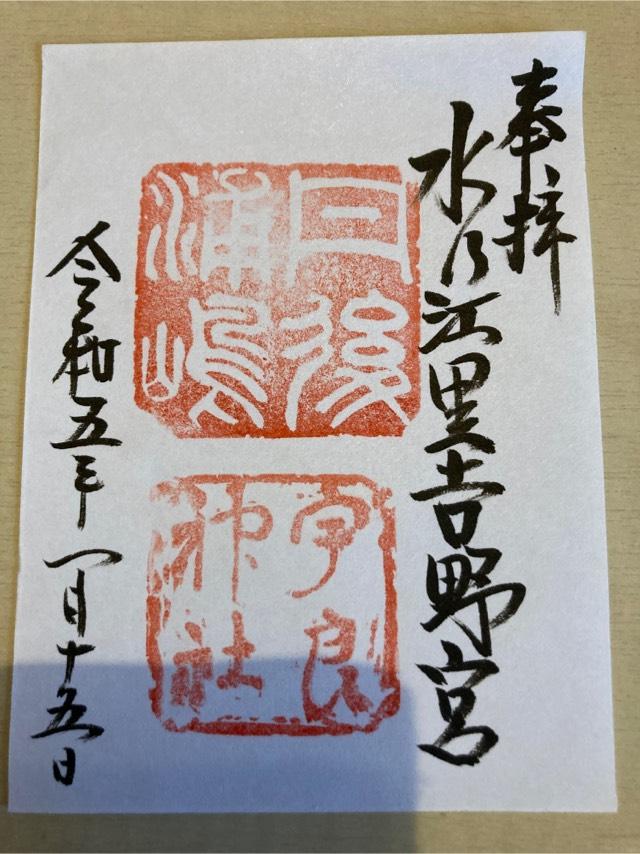 奉拝
水乃江里吉野宮
丹後
浦嶋
宇良
神社
令和五年一月十五日